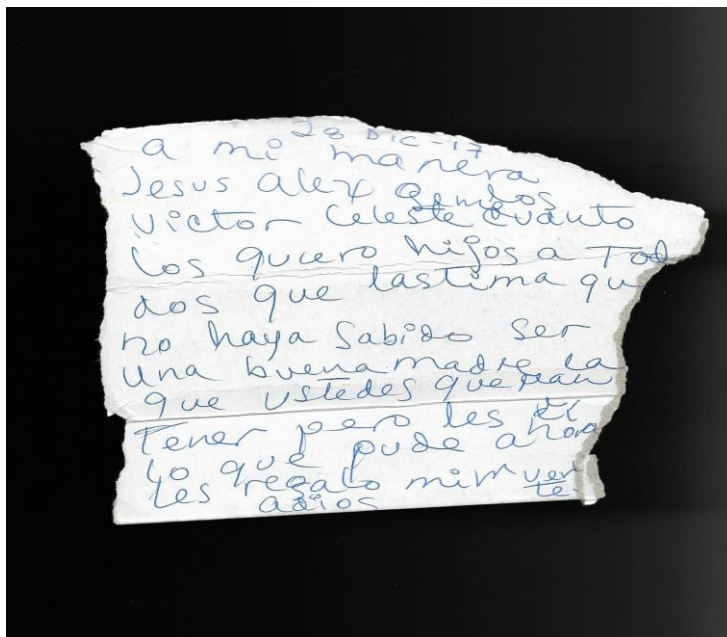 28 Dic-17
a mi manera
Jesus Alex
Victor Celeste cuanto
los quiero hijos a Tod
dos que lastima qu
no haya Sabido Ser
una buena madre la
que ustedes querian
Tener pero les di
lo que pude ahora
les regalo mi muer
te.
adios